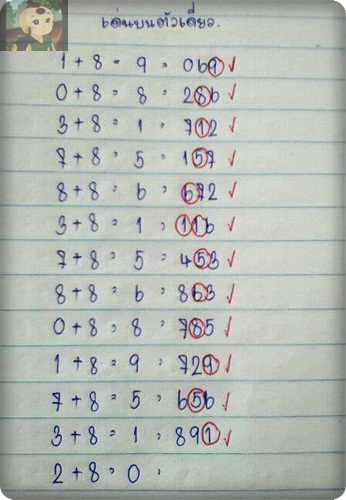 เด่นบนตัวเดียว.
1 + 8 = 9 = 069 ✓
0 + 8 = 8 = 286 ✓
3 + 8 = 1 = 712 ✓
7 + 8 = 5 = 157 ✓
8 + 8 = 6 = 672 ✓
3 + 8 = 1 = 116 ✓
7 + 8 = 5 = 453 ✓
8 + 8 = 6 = 863 ✓
0 + 8 = 8 = 785 ✓
1 + 8 = 9 = 729 ✓
7 + 8 = 5 = 656 ✓
3 + 8 = 1 = 891 ✓
2 + 8 = 0 =